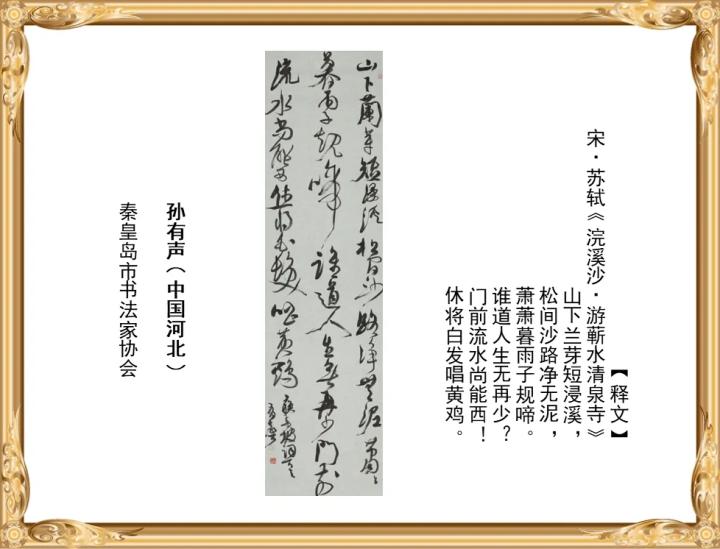 【释文】
宋·苏轼《浣溪沙·游蕲水清泉寺》
山下兰芽短浸溪，
松间沙路净无泥，
萧萧暮雨子规啼。
谁道人生无再少？
门前流水尚能西！
休将白发唱黄鸡。
山下蘭芽短浸溪松間沙路淨無泥蕭〻
暮雨子規啼誰道人生無再少門前
流水尚能西休將白髮唱黄鷄
孙有声（中国河北）
秦皇岛市书法家协会